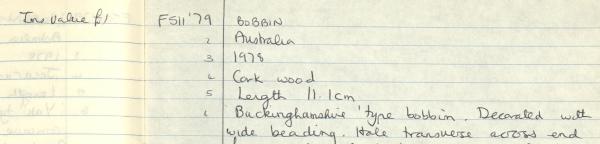 Ins value £1 FSII '79 BOBBIN
2 Australia
3 1978
4 Cork wood
5 Length 11.1cm
6 Buckinghamshire 'type bobbin. Decorated with
wide beading. Hole transverse across end